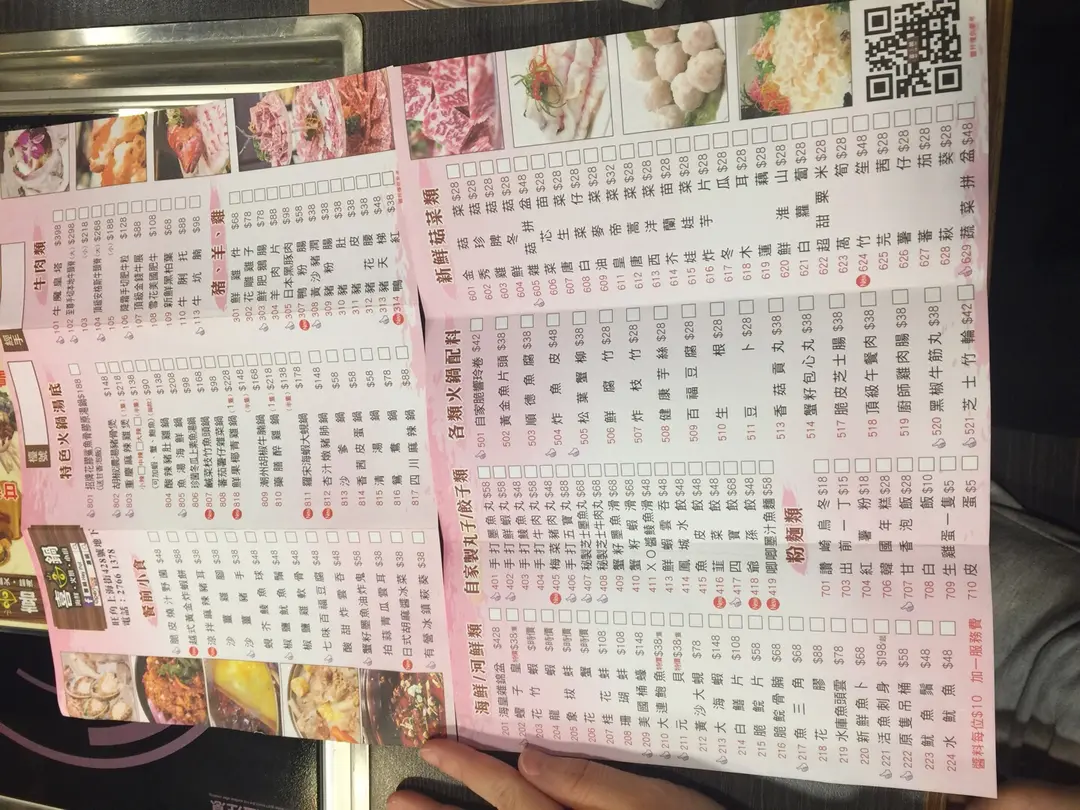 喜鍋
旺角上海街428號地下
電話：2766 1378
餐前小食
脆皮燒汁野菌 $48
越式黃金炸蝦餅 $38
涼拌麻辣豬耳 $38
沙薑豬手 $48
沙薑雞 $48
蜆芥鯪魚球 $48
椒鹽魷魚鬚 $48
椒鹽雞軟骨 $48
七味百福豆腐 $48
酸甜炸雲吞 $48
蟹籽墨魚油炸鬼 $58
拍蒜青瓜雲耳 $38
日式胡麻醬冰菜 $38
有營冰鎮萩葵 $38
特色火鍋湯底
801 招牌花膠鯊魚骨膠原湯鍋 $188
802 胡椒濃湯豬骨煲 $148
803 重慶麻辣雞煲
804 酸辣豬肚雞鍋 $138
805 魚湯海鮮鍋 $208
806 珍菌冬瓜上素魚湯鍋 $98
807 鹹菜枝竹魚頭鍋 $168
808 蕃茄薯仔雜菜鍋 $98
818 鮮果椰青雞鍋 $228
809 潮州胡椒牛腩鍋 $218
810 藥膳醉雞鍋 $138
811 羅宋海蝦大蜆鍋
812 杏汁燉豬肺鍋 $148
813 沙爹鍋 $58
814 香茜皮蛋鍋 $58
815 清湯鍋 $58
816 鴛鴦鍋 $78
817 四川麻辣鍋 $88
牛肉類
101 牛魔皇塔 $398
102 至尊手切本地牛頸脊 (大) $298
103 (小) $218
104 頂級安格斯牛頸脊 (大) $268
105 (小) $188
106 降霜手切牛粒 $128
107 頂級金錢牛𦟌 $88
108 雪花美國肥牛 $108
109 新鮮黑柏葉 $68
110 牛脷托 $88
113 牛坑腩 $98
豬、羊、雞
301 鮮雞件 $68
302 花雕雞子 $78
303 鮮肥豬腸 $88
304 羊肉片 $88
305 日本黑豚肉 $98
307 鴨腸 $58
308 黃沙豬潤 $38
309 豬粉腸 $38
310 豬肚 $38
311 豬皮 $38
312 豬腰 $38
313 豬天梯 $48
314 鴨紅 $38
海鮮/河鮮類
201 海皇雜錦盆 $428
202 蟶子皇 特價$38隻
203 花竹蝦 $時價
204 龍蝦 $時價
205 象拔蚌 $時價
206 花蟹 $時價
207 桂花蚌 $108
208 珊瑚蚌 $108
209 美國桶蠔 $148
210 大連鮑魚 特價$38隻
211 元貝 特價$38隻
212 黃沙大蜆 $78
213 大海蝦 $148
214 白鱔片 $108
215 脆鯇片 $58
216 脆鯇骨腩 $68
217 魚三角 $68
218 花膠 $88
219 水庫魚頭雲 $78
220 新鮮魚卜 $68
221 活魚刺身 $198起
222 原隻吊桶 $58
223 魷魚鬚 $48
224 水魷魚 $48
醬料每位$10 加一服務費
自家製丸子/餃子類
401 手打墨魚丸 $58
402 手打鮮蝦丸 $58
403 手打鯪魚丸 $48
404 手打牛肉丸 $48
405 梅菜豬肉丸 $48
406 手打五寶丸 $48
407 秘製芝士墨魚丸 $68
408 秘製芝士牛肉丸 $58
409 蟹籽墨魚滑 $68
410 蟹籽蝦滑 $68
411 XO醬鯪魚滑 $58
413 鮮蝦雲吞 $48
414 鳳城水餃 $48
415 魚皮餃 $48
416 韮菜餃 $48
417 四寶餃 $68
418 爺孫餃 $48
419 唧唧墨汁魚麵 $58
粉麵類
701 讚崎烏冬 $18
703 出前一丁 $15
704 紅薯粉 $18
706 韓國年糕 $28
707 甘香泡飯 $28
708 白飯 $10
709 生雞蛋一隻 $5
710 皮蛋 $5
各類火鍋配料
501 自家脆響玲卷 $42
502 黃金魚片頭 $38
503 順德魚腐 $38
504 炸魚皮 $48
505 松葉蟹柳 $38
506 鮮腐竹 $28
507 炸枝竹 $28
508 健康芋絲 $28
509 百福豆腐 $28
510 生根 $28
511 豆卜 $28
513 香菇貢丸 $38
514 蟹籽包心丸 $48
517 脆皮芝士腸 $38
518 頂級午餐肉 $38
519 廚師雞肉腸 $38
520 黑椒牛筋丸 $38
521 芝士竹輪 $42
新鮮菇菜類
601 金菇 $28
602 秀珍菇 $28
603 雞脾菇 $28
604 鮮冬菇 $28
605 雜菇拼盆 $48
606 菜芯苗 $28
607 唐生菜 $28
608 白菜仔 $28
609 油麥菜 $28
611 皇帝菜 $32
612 唐蒿菜 $28
613 西洋菜 $28
614 芥蘭苗 $28
615 娃娃菜 $28
616 炸芋片 $28
617 冬瓜 $28
618 木耳 $28
619 蓮藕 $28
620 鮮淮山 $28
621 白蘿蔔 $28
622 超甜粟米 $28
623 萵筍 $28
624 竹笙 $48
625 芫茜 $28
626 薯仔 $28
627 蕃茄 $28
628 萩葵 $28
629 蔬菜拼盆 $48